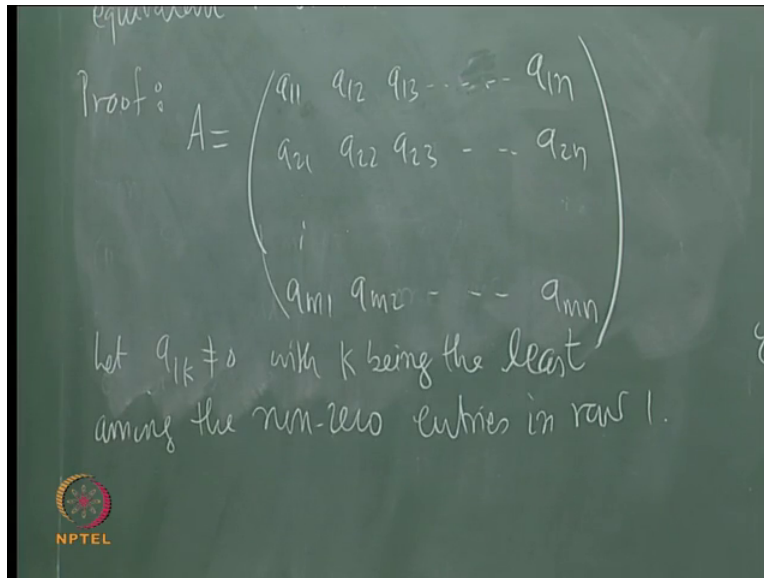 equivalent
Proof: A = ( a11 a12 a13 - - - - - a1n
a21 a22 a23 - - - a2n
a m1 a m2 - - - a mn )
Let a1k ≠ 0 with k being the least
among the non-zero entries in row 1.
NPTEL